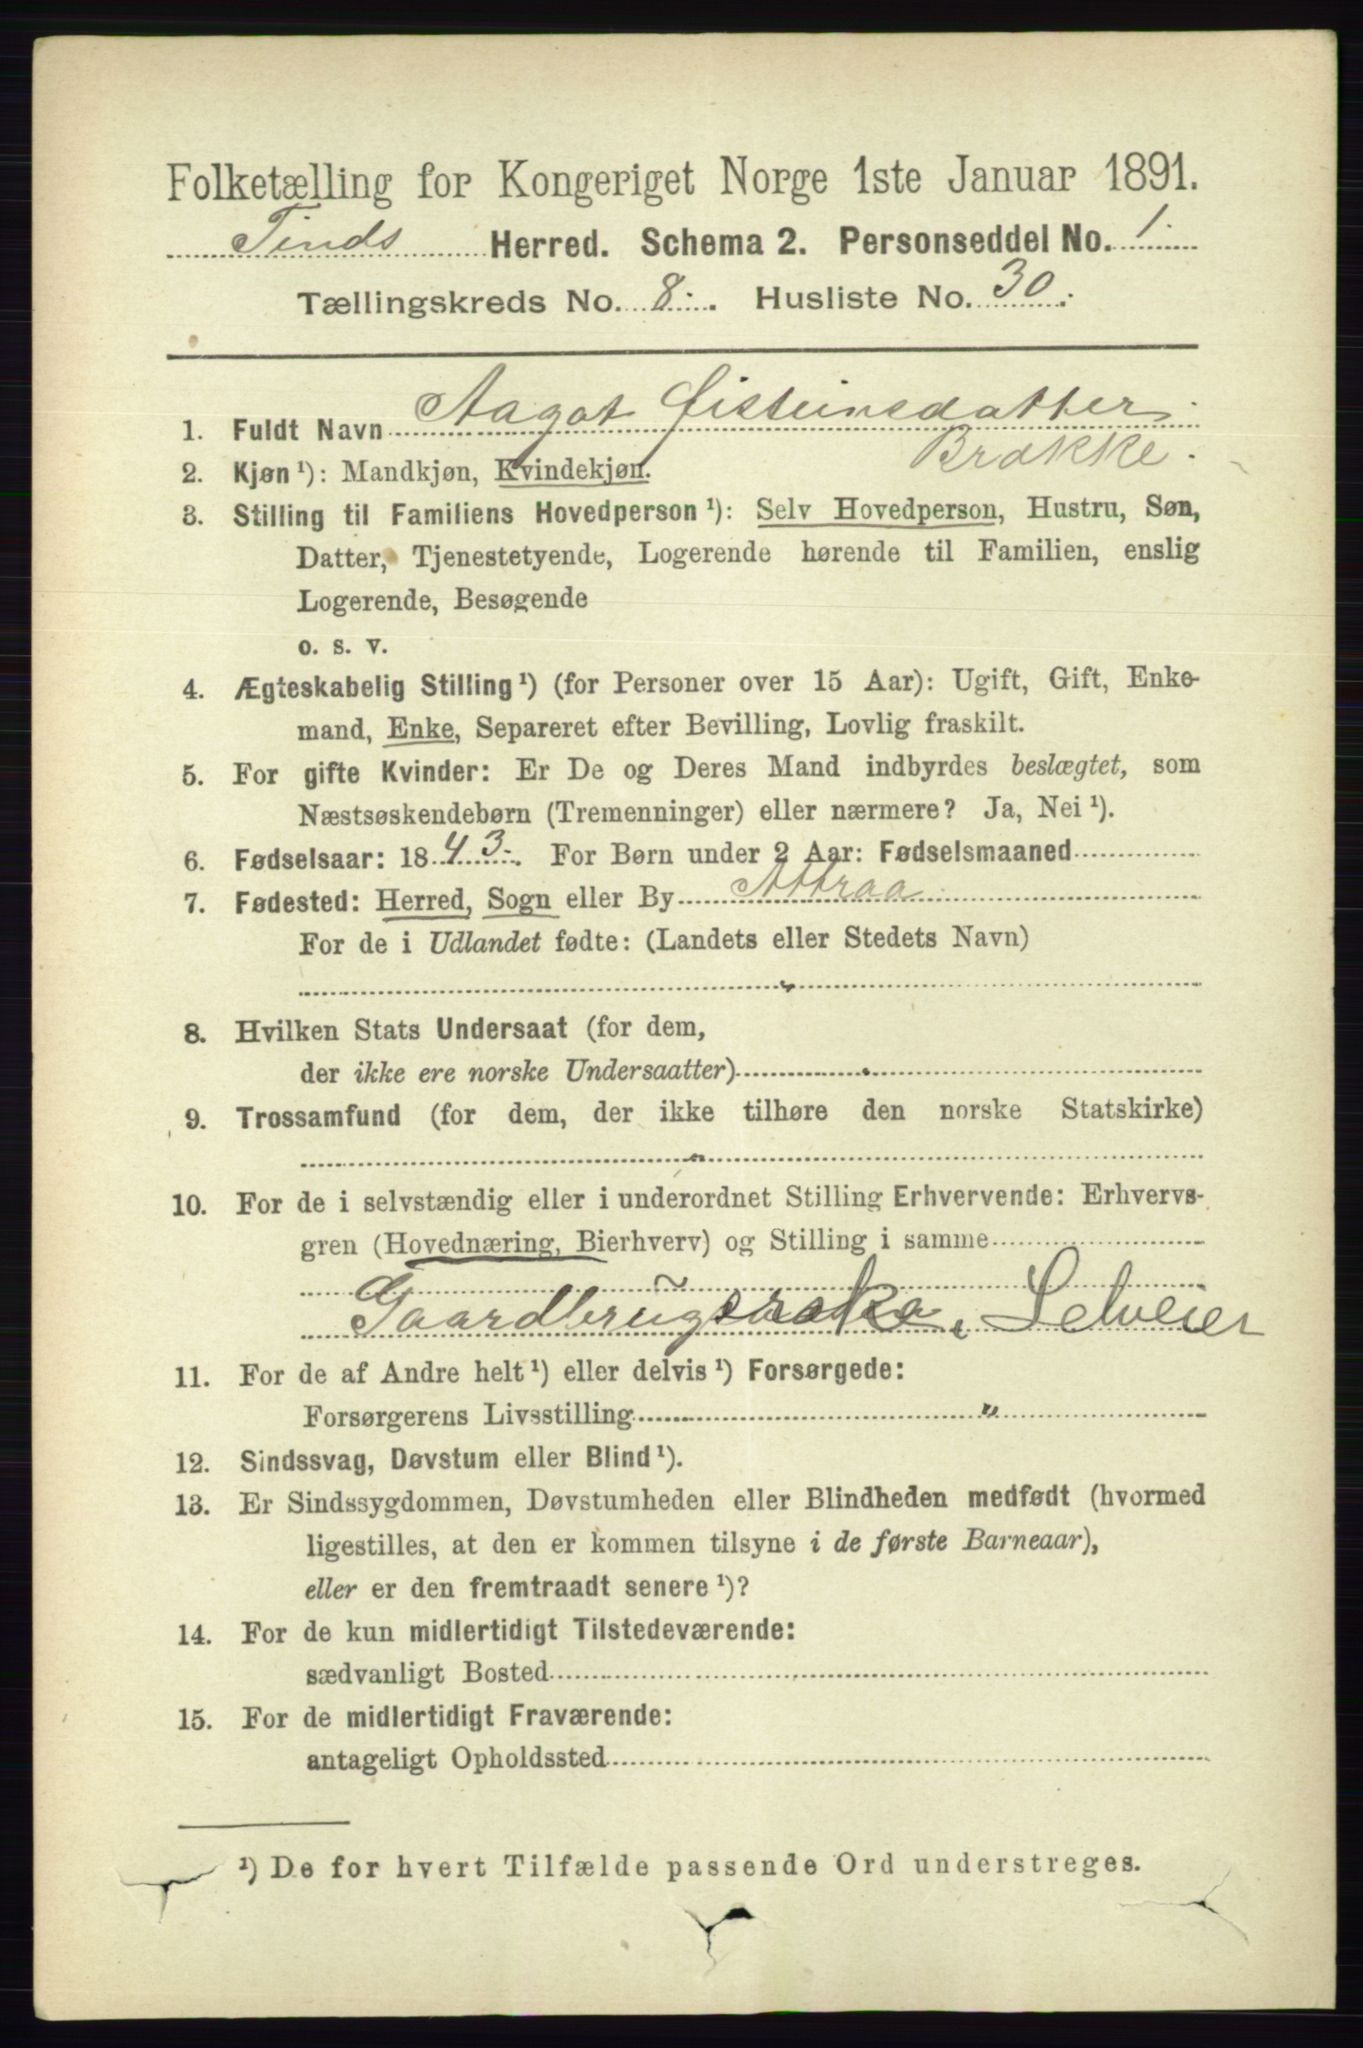 Folketælling for Kongeriget Norge 1ste Januar 1891.
Tinds Herred. Schema 2. Personseddel No. 1.
Tællingskreds No. 8. Husliste No. 30.
1. Fuldt Navn Aagot Øisteinsdatter
Brakke.
2. Kjøn ¹): Mandkjøn, Kvindekjøn.
3. Stilling til Familiens Hovedperson ¹): Selv Hovedperson, Hustru, Søn,
Datter, Tjenestetyende, Logerende hørende til Familien, enslig
Logerende, Besøgende
o. s. v.
4. Ægteskabelig Stilling ¹) (for Personer over 15 Aar): Ugift, Gift, Enke-
mand, Enke, Separeret efter Bevilling, Lovlig fraskilt.
5. For gifte Kvinder: Er De og Deres Mand indbyrdes beslægtet, som
Næstsøskendebørn (Tremenninger) eller nærmere? Ja, Nei ¹).
6. Fødselsaar: 1843. For Børn under 2 Aar: Fødselsmaaned
7. Fødested: Herred, Sogn eller By Attraa
For de i Udlandet fødte: (Landets eller Stedets Navn)
"
8. Hvilken Stats Undersaat (for dem,
der ikke ere norske Undersaatter)
9. Trossamfund (for dem, der ikke tilhøre den norske Statskirke)
"
10. For de i selvstændig eller i underordnet Stilling Erhvervende: Erhvervs-
gren (Hovednæring, Bierhverv) og Stilling i samme
Gaardbrugerske, Selveier
11. For de af Andre helt ¹) eller delvis ¹) Forsørgede:
Forsørgerens Livsstilling "
12. Sindssvag, Døvstum eller Blind ¹).
13. Er Sindssygdommen, Døvstumheden eller Blindheden medfødt (hvormed
ligestilles, at den er kommen tilsyne i de første Barneaar),
eller er den fremtraadt senere ¹)?
14. For de kun midlertidigt Tilstedeværende:
sædvanligt Bosted
15. For de midlertidigt Fraværende:
antageligt Opholdssted
¹) De for hvert Tilfælde passende Ord understreges.